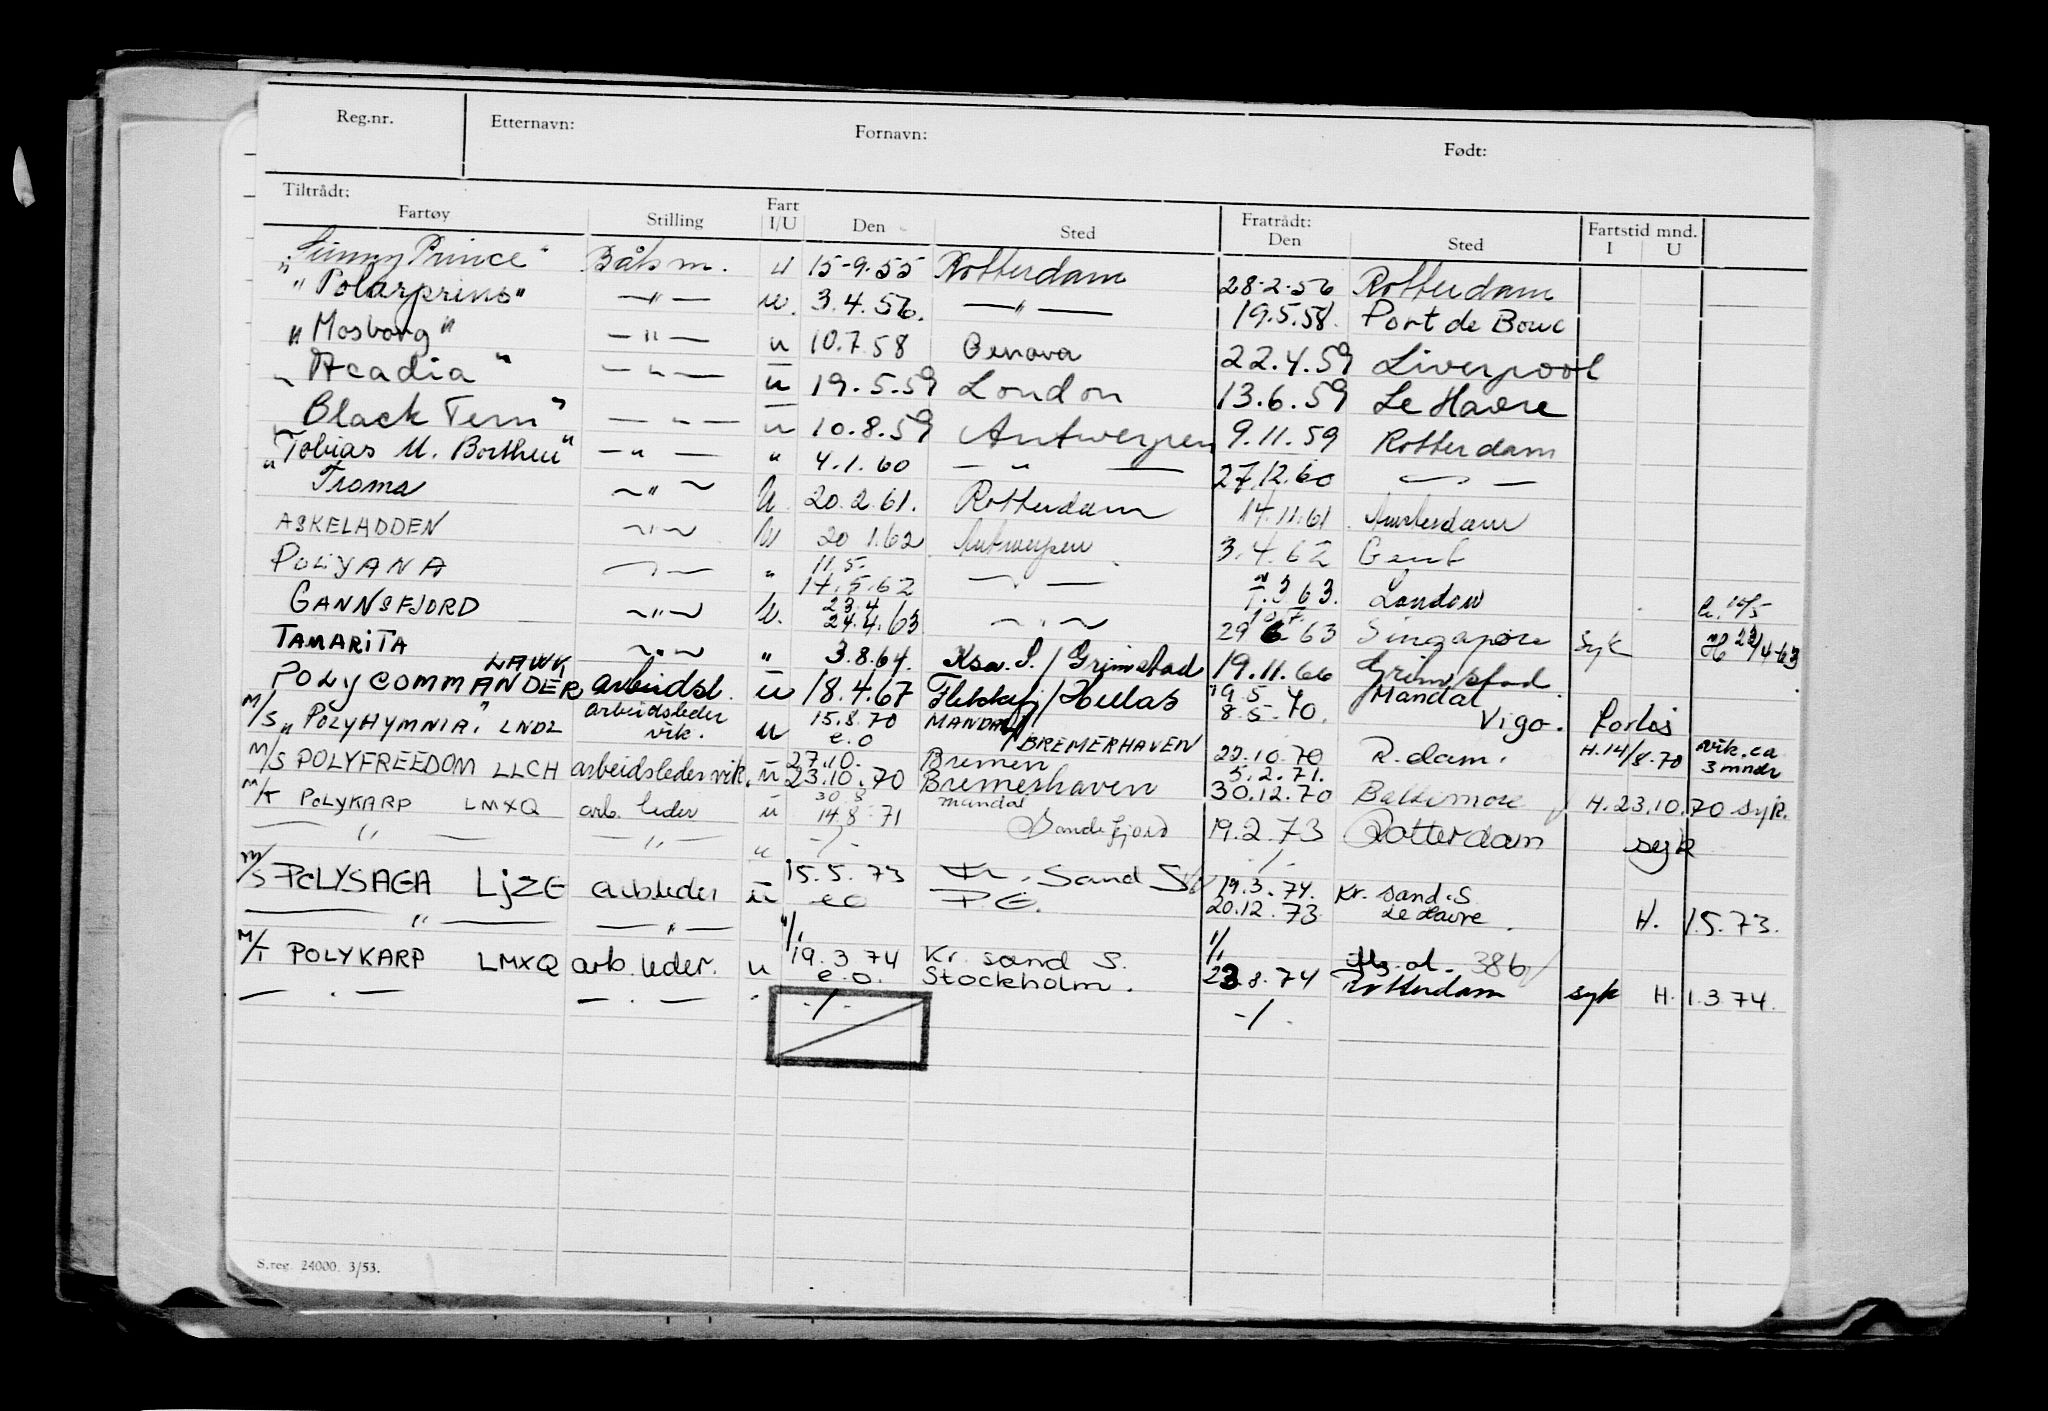 Reg.nr. Etternavn: Fornavn: Født:
Tiltrådt: Fratrådt: Fartstid mnd.
Fartøy Stilling Fart I/U Den Sted Den Sted I U
"Sunny Prince" Båtsm. u 15-9.55 Rotterdam 28-2-56 Rotterdam
"Polarprins" —"— u. 3.4.56. —"— 19.5.58. Port de Bouc
"Mosborg" —"— u 10.7.58 Genova 22.4.59 Liverpool
"Acadia" —"— u 19.5.59 London 13.6.59 Le Havre
"Black Tern" —"— u 10.8.59 Antwerpen 9.11.59 Rotterdam
"Tobias U. Borthen" —"— " 4.1.60 —"— 27.12.60 —"—
Troma —"— U 20.2.61. Rotterdam 14.11.61 Amsterdam
ASKELADDEN —"— U 20 1.62 Antwerpen 3.4.62 Gent
POLYANA —"— " 11.5. 14.5.62 —"— 3 63. London 10/5
GANNSFJORD —"— U. 23.4 24.4.63 —"— 29 6 63 Singapore syk H 23/4-63
TAMARITA —"— " 3.8.64. Kra. S./Grimstad 19.11.66 Grimstad.
POLYCOMMANDER LAWK arbeidsl. u 18.4.67 Flekkefj/Hellas 19 5 8.5.70. Mandal Vigo. forlis
M/S "POLYHYMNIA" LNDL arbeidsleder vik. u 15.8.70 e.o MANDAL/BREMERHAVEN 22.10.70 R.dam. H.14/8.70 vik. ca 3 mndr
M/S POLYFREEDOM LLCH arbeidsleder vik. u 27.10. 23.10.70 Bremen Bremerhaven 5.2.71. 30.12.70 Baltimore H.23.10.70 syk.
M/T POLYKARP LMXQ arb. leder u 30 8 14 8 71 Mandal Sandefjord 19.2.73 Rotterdam syk
—"— —"— u -/- -/-
M/S POLYSAGA LJZE arb.leder u 15.5.73 eo Kr. Sand S P.E. 19.3.74. 20.12.73 Kr. sand.S Le Havre. H. 1.5.73.
—"— —"— "/, 1/,
M/T POLYKARP LMXQ arb. leder. u 19.3 74 e.o. Kr. sand S. Stockholm. 23.8.74 386 Rotterdam syk H. 1.3.74.
—.— —.— " -/- -/-
S.reg. 24000. 3/53.